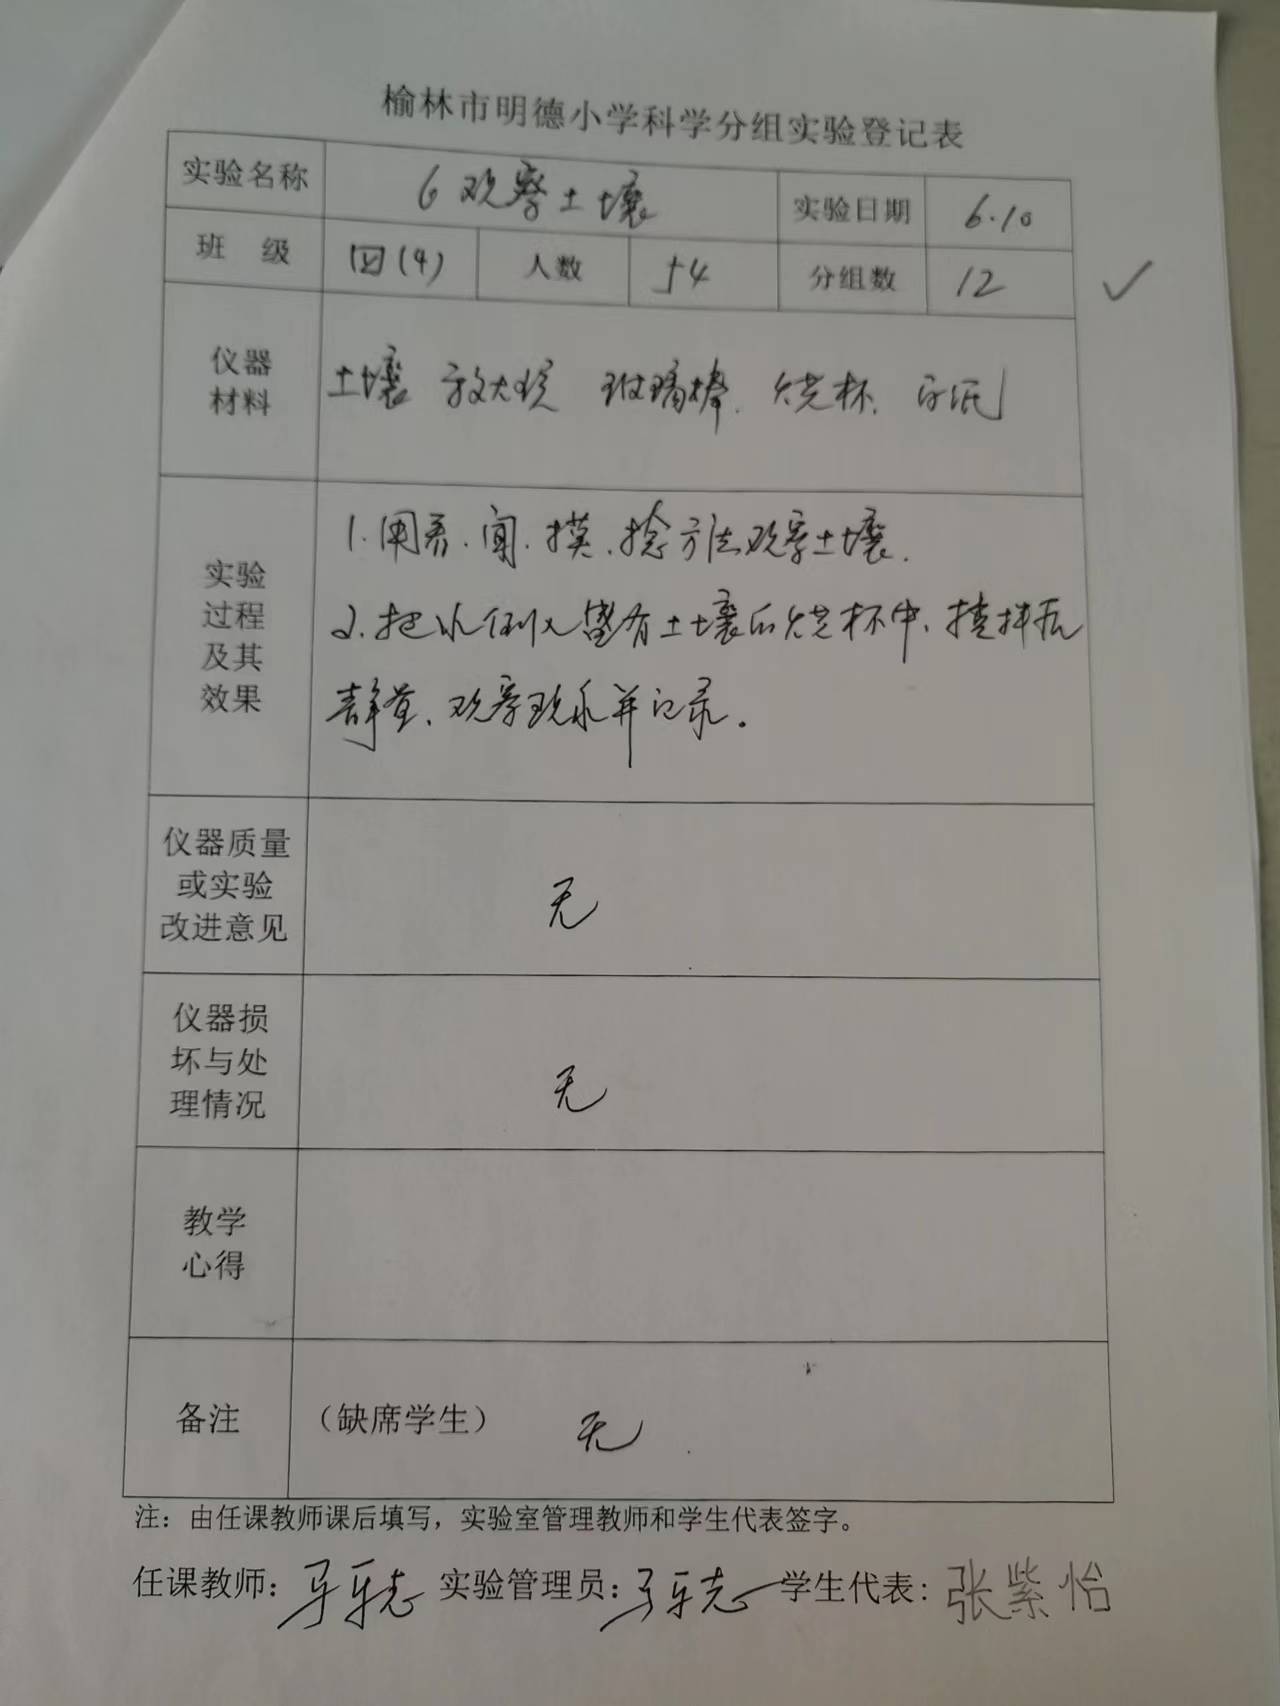 榆林市明德小学科学分组实验登记表
实验名称 6 观察土壤 实验日期 6.10
班 级 四(4) 人数 54 分组数 12
仪器
材料
土壤 放大镜 玻璃棒、烧杯、
实验
过程
及其
效果
1.用看、闻、摸、捻方法观察土壤.
2.把水倒入盛有土壤的烧杯中、搅拌后
静置、观察现象并记录。
仪器质量
或实验
改进意见
无
仪器损
坏与处
理情况
无
教学
心得
备注 （缺席学生） 无
注：由任课教师课后填写，实验室管理教师和学生代表签字。
任课教师： 实验管理员： 学生代表：张紫怡